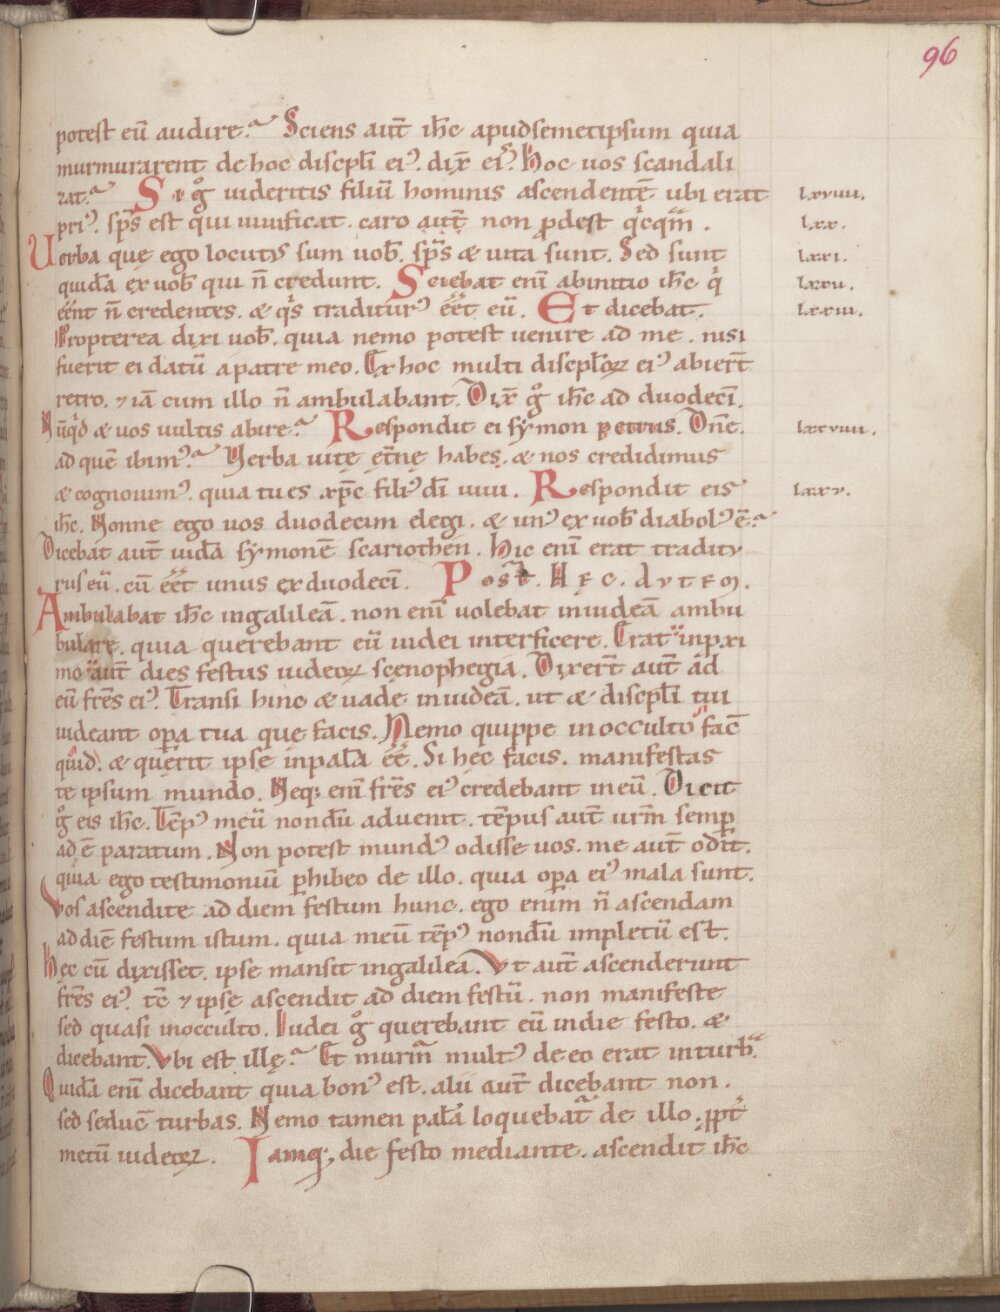 96
potest eū audire? Sciens aut̄ ih̄c apud semetipsum quia
murmurarent de hoc discipl̄i eiꝰ. dix̄ eis? Hoc uos scandali
zat? Si g̊ uideritis filiū hominis ascendentē ubi erat lxviiii.
priꝰ. sp̄s est qui uiuificat. caro aut̄ non ꝓdest qicqm̄. lxx.
Uerba que ego locutꝰ sum uob̄. sp̄s & uita sunt. Sed sunt lxxi.
quidā ex uob̄ qui n̄ credunt. Sciebat enī abinitio ih̄c q̇ lxxii.
eēnt n̄ credentes. & q̇s traditurꝰ eēt eū. Et dicebat. lxxiii.
Propterea dixi uob̄. quia nemo potest uenire ad me. nisi
fuerit ei datū apatre meo. Ex hoc multi discipl̄oꝝ eiꝰ abier̄t
retro. ⁊ iā cum illo n̄ ambulabant. Dix̄ g̊ ih̄c ad duodecī.
Nūq̇d & uos uultis abire? Respondit ei symon petrus. Dn̄e. lxxiiii.
ad quē ibimꝰ? Verba uitę et̄nę habes. & nos credidimus
& cognouimꝰ. quia tu es xp̄c filiꝰ dī uiui. Respondit eis lxxv.
ih̄c. Nonne ego uos duodecim elegi. & unꝰ ex uob̄ diabolꝰ ē?
Dicebat aut̄ iudā symonē scariothen. hic enī erat traditu
rus eū. cū eēt unus ex duodecī. Post. Hec. autem.
Ambulabat ih̄c ingalileā. non enī uolebat iniudeā ambu
bulare. quia querebant eū iudei interficere. Erat inpxi
mo aut̄ dies festus iudeoꝝ scenophegia. Dixer̄t aut̄ ad
eū fr̄es eiꝰ. Transi hinc & uade iniudeā. ut & discipl̄i tui
uideant oꝑa tua que facis. Nemo quippe inocculto fac̄
quid. & querit ipse inpalā eē. Si hec facis. manifestas
te ipsum mundo. Neq; enī fr̄es eiꝰ credebant ineū. Dicit
g̊ eis ih̄c. Tēpꝰ meū nondū aduenit. tēpus aut̄ ur̄m semꝑ
ad ē paratum. Non potest mundꝰ odisse uos. me aut̄ odit.
quia ego testimoniū ꝑhibeo de illo. quia oꝑa eiꝰ mala sunt.
Vos ascendite ad diem festum hunc. ego enim n̄ ascendam
ad diē festum istum. quia meū tēpꝰ nondū impletū est.
Hęc cū dixisset. ipse mansit ingalilea. Vt aut̄ ascenderunt
fr̄es eiꝰ. tc̄ ⁊ ipse ascendit ad diem festū. non manifeste
sed quasi inocculto. Iudei g̊ querebant eū indie festo. &
dicebant. Vbi est ille? Et murm̄ multꝰ de eo erat inturb̄.
Quidā enī dicebant quia bonꝰ est. alii aut̄ dicebant non.
sed seduc̄ turbas. Nemo tamen palā loquebat̄ de illo. ꝓpt̄
metū iudeoꝝ. Iamq; die festo mediante. ascendit ih̄c